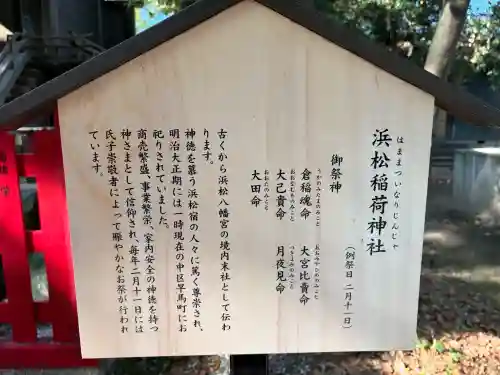 はままついなりじんじゃ
浜松稲荷神社
(例祭日 二月十一日)
御祭神
うかのみたまのみこと おおみやひめのみこと
倉稲魂命 大宮比売命
おおなむちのみこと つきよみのみこと
大己貴命 月夜見命
おおたのみこと
大田命
古くから浜松八幡宮の境内末社として伝わ
ります。
神徳を慕う浜松宿の人々に篤く尊崇され、
明治大正期には一時現在の中区早馬町にお
祀りされていました。
商売繁盛、事業繁栄、家内安全の神徳を持つ
神さまとして信仰され、毎年二月十一日には
氏子崇敬者によって賑やかなお祭が行われ
ています。